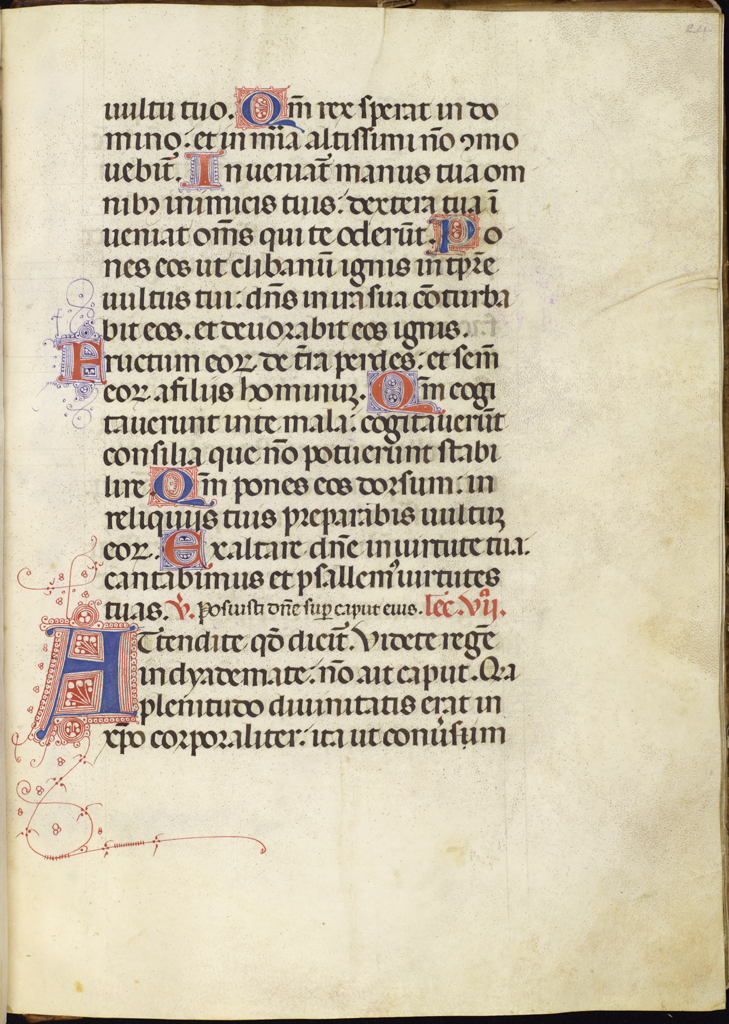 uultu tuo. Qm̄ rex sperat in do
mino: et in mīa altissimi nō ꝯmo
uebit̄. Inueniat̄ manus tua om
nibꝫ inimicis tuis: dextera tua ī
ueniat om̄s qui te oderūt. Po
nes eos ut clibanū ignis in tp̄re
uultus tui: dn̄s in ira sua cōturba
bit eos. et deuorabit eos ignis.
Fructum eoꝝ de t̄ra perdes: et sem̄
eoꝝ a filijs hominuꝫ. Qm̄ cogi
tauerunt in te mala: cogitauerūt
consilia que nō potuerunt stabi
lire. Qm̄ pones eos dorsum: in
reliquijs tuis preparabis uultuꝫ
eoꝝ. Exaltare dn̄e in uirtute tua.
cantabimus et psallem᾽ uirtutes
tuas. V̄. Posuisti dn̄e suꝑ caput eius. lec. vijͦ.
ATtendite qd̄ dicit̄. Videte regē
in dyademate: nō ait caput. Qa
plenitudo diuinitatis erat in
xp̄o corporaliter: ita ut conūsum